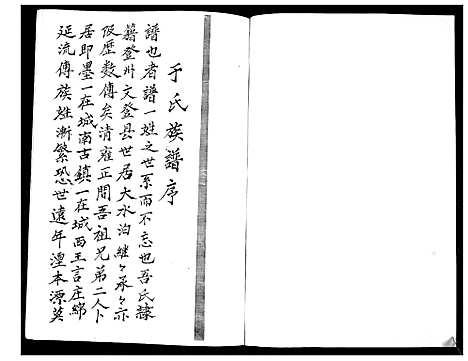 于氏族譜序
譜也者譜一姓之世系而不忘也吾氏隸
籍登州文登县世居大水泊継々承々亦
伋歷数傳矣清雍正間吾祖兄弟二人卜
居即墨一在城南古鎮一在城西王言庄綿
延流傳族姓漸繁恐世遠年湮本源莫